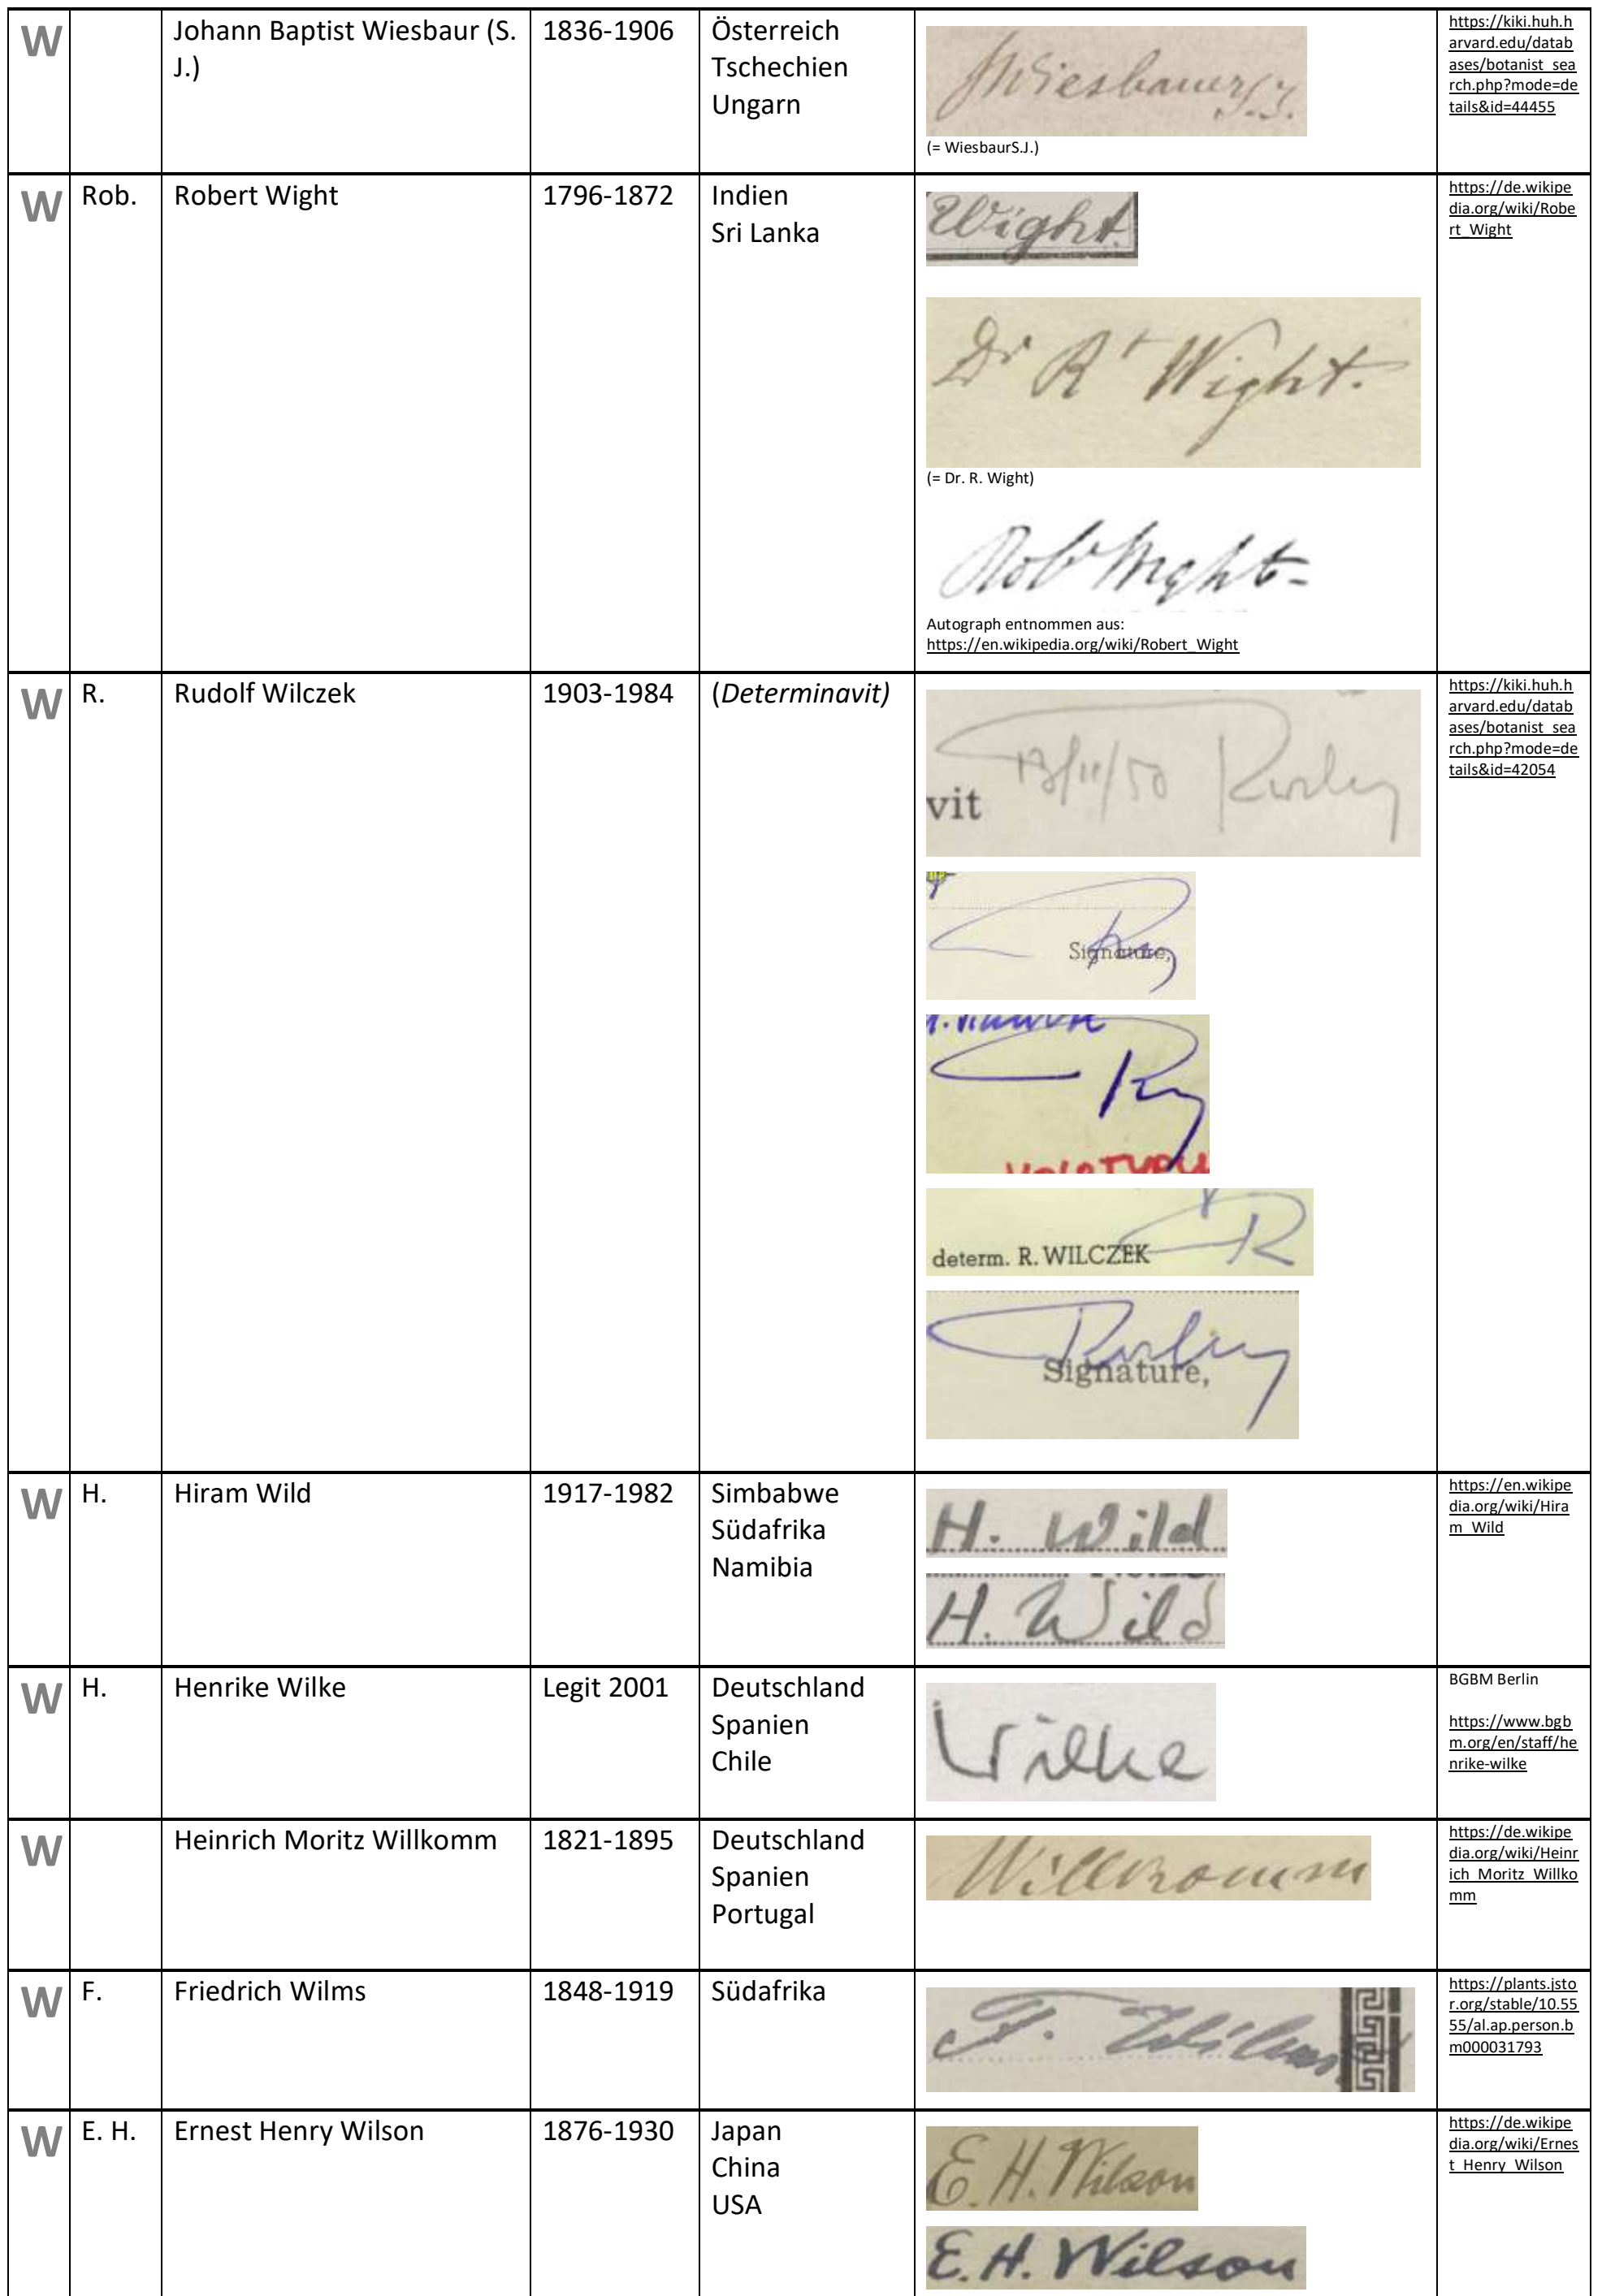 W
Johann Baptist Wiesbaur (S.
J.)
1836-1906
Österreich
Tschechien
Ungarn
JWiesbauer S.J.
(= WiesbaurS.J.)
https://kiki.huh.h
arvard.edu/datab
ases/botanist_sea
rch.php?mode=de
tails&id=44455
W
Rob.
Robert Wight
1796-1872
Indien
Sri Lanka
Wight.
Dr Rt Wight.
(= Dr. R. Wight)
Robt Wight-
Autograph entnommen aus:
https://en.wikipedia.org/wiki/Robert_Wight
https://de.wikipe
dia.org/wiki/Robe
rt_Wight
W
R.
Rudolf Wilczek
1903-1984
(Determinavit)
vit
Signature,
determ. R. WILCZEK
Signature,
https://kiki.huh.h
arvard.edu/datab
ases/botanist_sea
rch.php?mode=de
tails&id=42054
W
H.
Hiram Wild
1917-1982
Simbabwe
Südafrika
Namibia
H. Wild
H. Wild
https://en.wikipe
dia.org/wiki/Hira
m_Wild
W
H.
Henrike Wilke
Legit 2001
Deutschland
Spanien
Chile
Wilke
BGBM Berlin
https://www.bgb
m.org/en/staff/he
nrike-wilke
W
Heinrich Moritz Willkomm
1821-1895
Deutschland
Spanien
Portugal
Willkomm
https://de.wikipe
dia.org/wiki/Heinr
ich_Moritz_Willko
mm
W
F.
Friedrich Wilms
1848-1919
Südafrika
F. Wilms
https://plants.jsto
r.org/stable/10.55
55/al.ap.person.b
m000031793
W
E. H.
Ernest Henry Wilson
1876-1930
Japan
China
USA
E. H. Wilson
E. H. Wilson
https://de.wikipe
dia.org/wiki/Ernes
t_Henry_Wilson